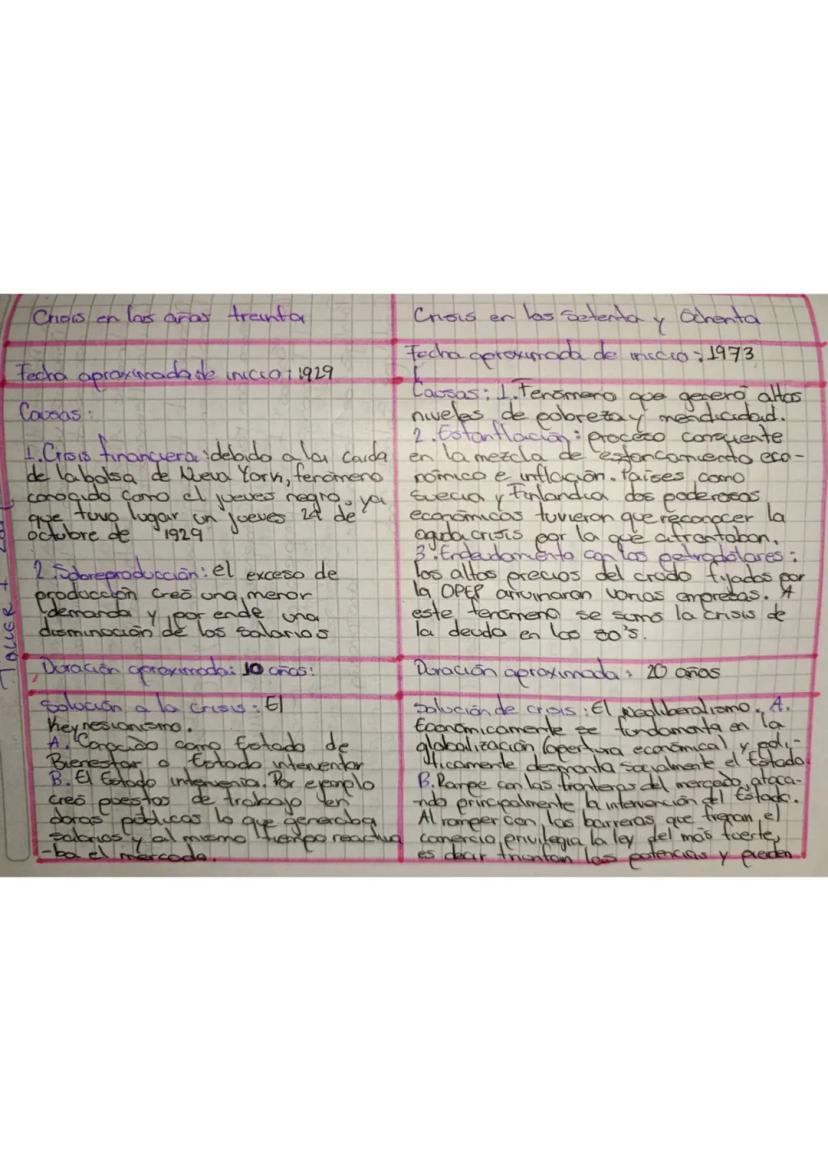 Crisis en los años treinta
Fecha aproximada de inicio: 1929
Causas:
1. Crisis financiera: debido a la caida
de la bolsa de Nueva York, fenómeno
conocido como el jueves negro, ya
que tuvo lugar un jueves 24 de
octubre de 1929
2. Sobreproducción: el exceso de
producción creó una menor
demanda y por ende una
disminución de los salarios
Duración aproximada: 10 años:
Solución a la crisis: El
Keynesianismo.
A. Conocido como Estado de
Bienestar o Estado interventor
B. El Estado intervenía. Por ejemplo
creó puestos de trabajo en
obras públicas lo que generaba
salarios y al mismo tiempo reactiva
-ba el mercado.
Crisis en los setenta y Ochenta
Fecha aproximada de inicio: 1973
Causas: 1. Fenómeno que generó altos
niveles de pobreza y mendicidad.
2. Estanflación: proceso
en la mezcla de estancamiento eco-
nómico e inflación. Países como
Suecia y Finlandia dos poderosos
económicos tuvieron que reconocer la
aguda crisis por la que afrontaban.
3. Endeudamiento con los petrodolares:
los altos precios del crudo fijados por
la OPEP arruinaron varias empresas. A
este fenómeno se sumo la crisis de
la deuda en los 80's.
Duración aproximada: 20 años
Solución de crisis: El neoliberalismo. A.
Económicamente se fundamenta en la
globalización (apertura económica) y polí-
ticamente desmonta socialmente el Estado
B. Rompe con las fronteras del mercado, ataca-
ndo principalmente la intervención del Estado.
Al romper con las barreras que frenan el
comercio privilegia la ley del más fuerte,
es decir triunfan las potencias y pierden
TALLER 1